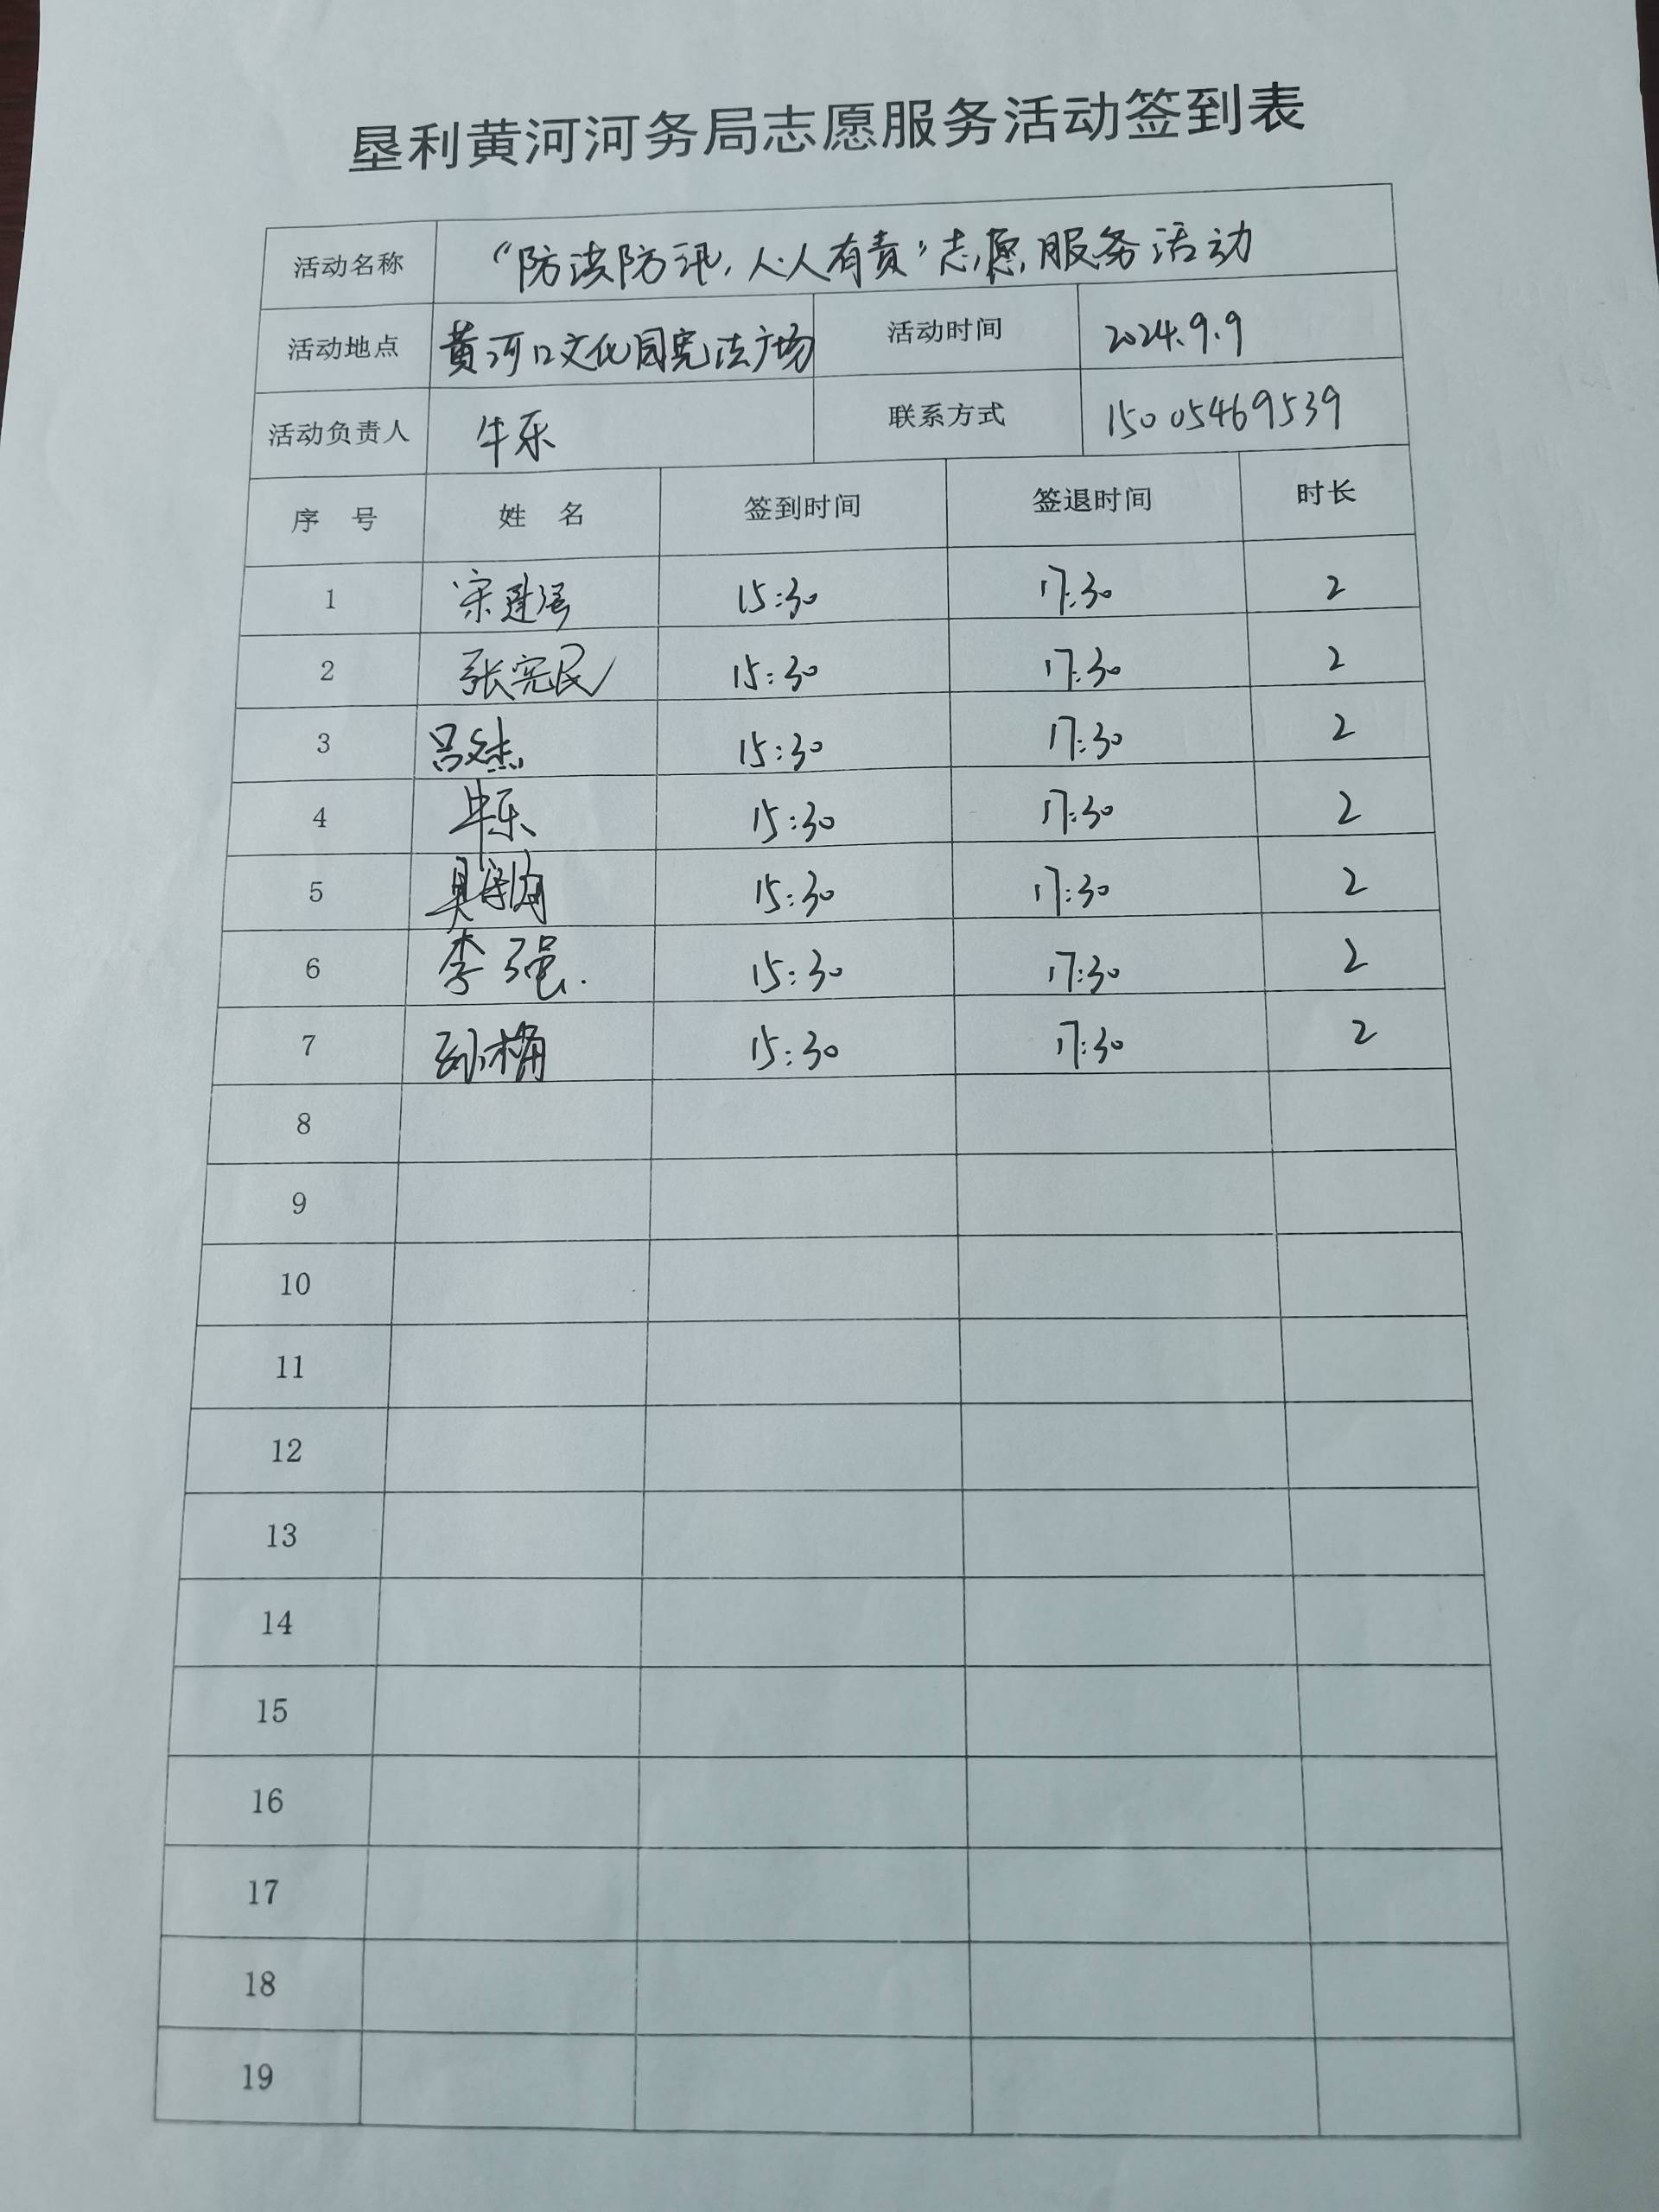 垦利黄河河务局志愿服务活动签到表
活动名称 “防洪防汛,人人有责”志愿服务活动
活动地点 黄河口文化园宪法广场 活动时间 2024.9.9
活动负责人 牛乐 联系方式 15005469539
序 号 姓 名 签到时间 签退时间 时长
1 宋建强 15:30 17:30 2
2 张宪民 15:30 17:30 2
3 吕文杰 15:30 17:30 2
4 牛乐 15:30 17:30 2
5 15:30 17:30 2
6 李强 15:30 17:30 2
7 孙楠 15:30 17:30 2
8
9
10
11
12
13
14
15
16
17
18
19